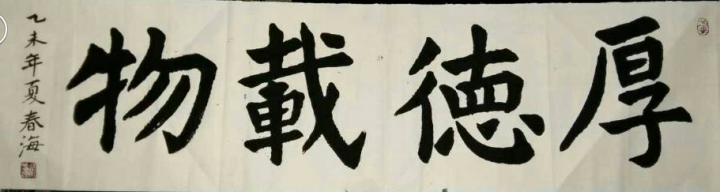 厚德載物
乙未年夏春海